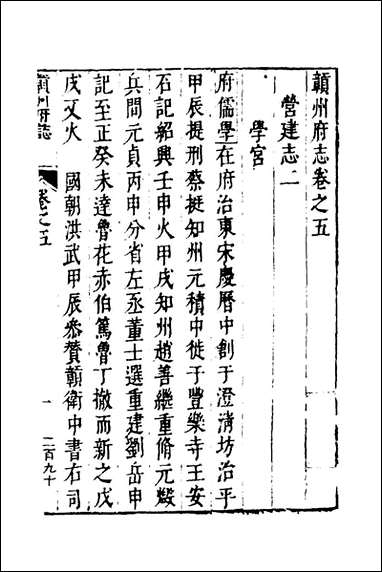 贛州府志卷之五
營建志二
學宮
府儒學在府治東宋慶曆中創于澄清坊治平
甲辰提刑蔡挺知州元積中徙于豐樂寺王安
石記紹興壬申火甲戌知州趙善繼重脩元燬
兵間元貞丙申分省左丞董士選重建劉岳申
記至正癸未達魯花赤伯篤魯丁撤而新之戊
戌又火　國朝洪武甲辰叅贊贛衛中書右司
贛州府誌
卷之五
一
二百九十